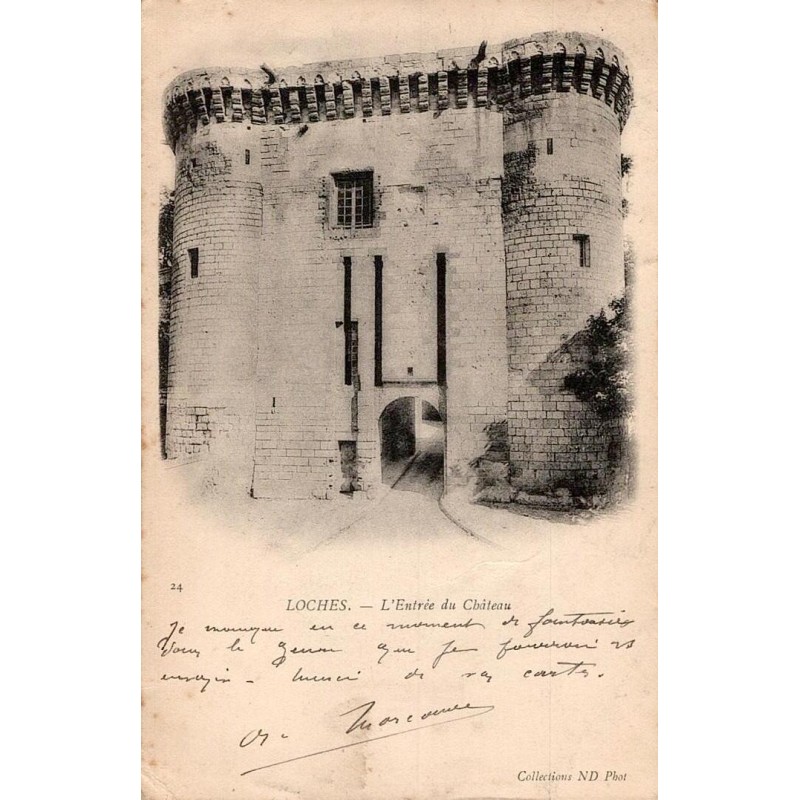 24
LOCHES. — L'Entrée du Château
Je manque en ce moment de fantaisies
dans le genre que je pourrai
envoyer - Merci de vos cartes.
Collections ND Phot